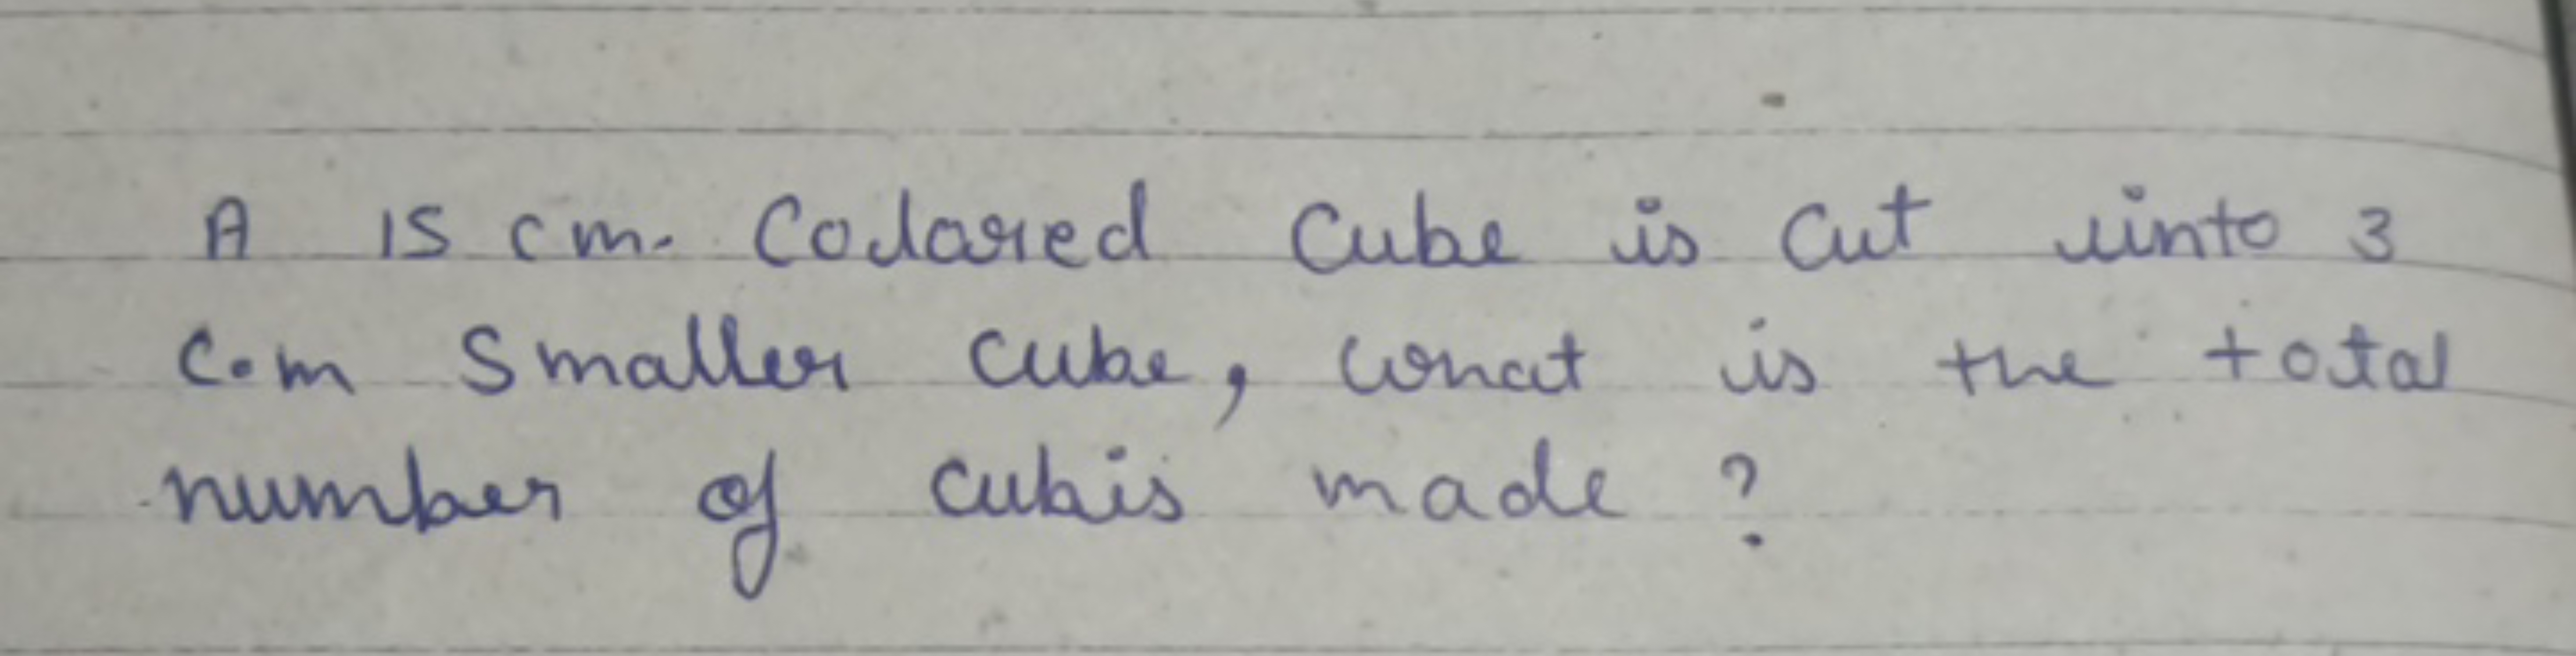 A 15 cm. Colared Cube is Cut into 3
C.m Smaller cube, What is the total
number of cubis made ?